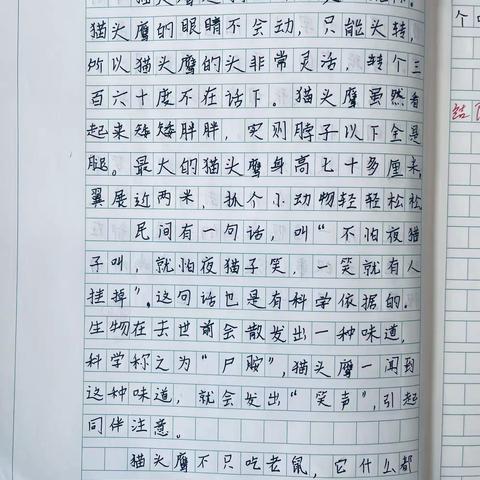 猫头鹰的眼睛不会动，只能头转，
所以猫头鹰的头非常灵活，转个三
百六十度不在话下。猫头鹰虽然看
起来矮矮胖胖，实则脖子以下全是
腿。最大的猫头鹰身高七十多厘米，
翼展近两米，抓个小动物轻轻松松。
民间有一句话，叫“不怕夜猫
子叫，就怕夜猫子笑，一笑就有人
挂掉”。这句话也是有科学依据的。
生物在去世前会散发出一种味道，
科学称之为“尸胺”，猫头鹰一闻到
这种味道，就会发出“笑声”，引起
同伴注意。
猫头鹰不只吃老鼠，它什么都
个